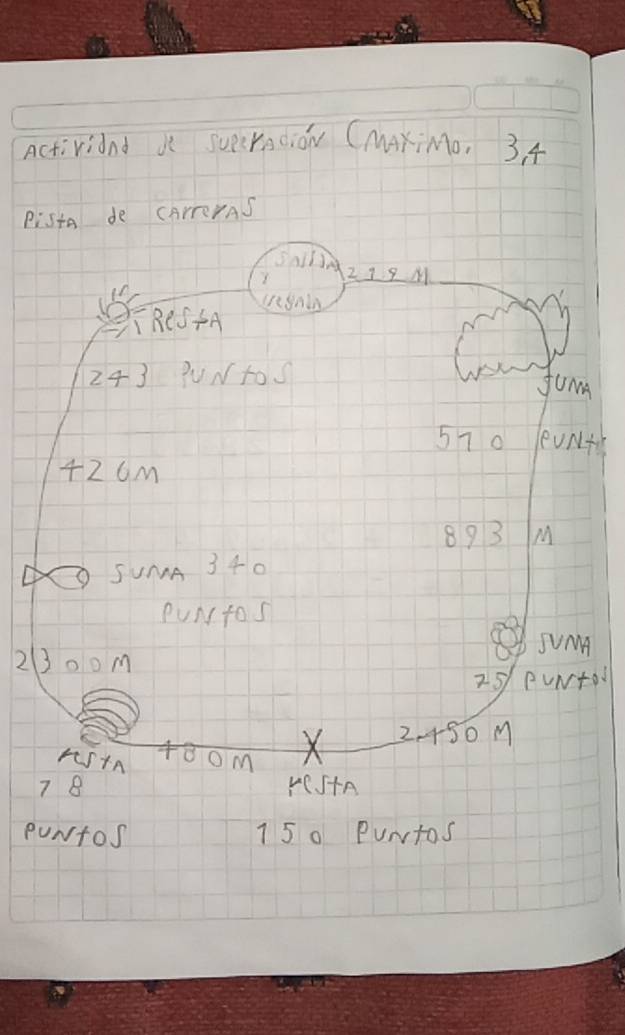 Actividad de superación (Máximo. 3,4
Pista de carreras
Salida
y
llegada
219 M
Resta
243 Puntos
Suma
510 Punt
420M
893 M
Suma 340
Puntos
Suma
25 Puntos
2300M
2450 M
480M
resta
78
Puntos
resta
150 Puntos